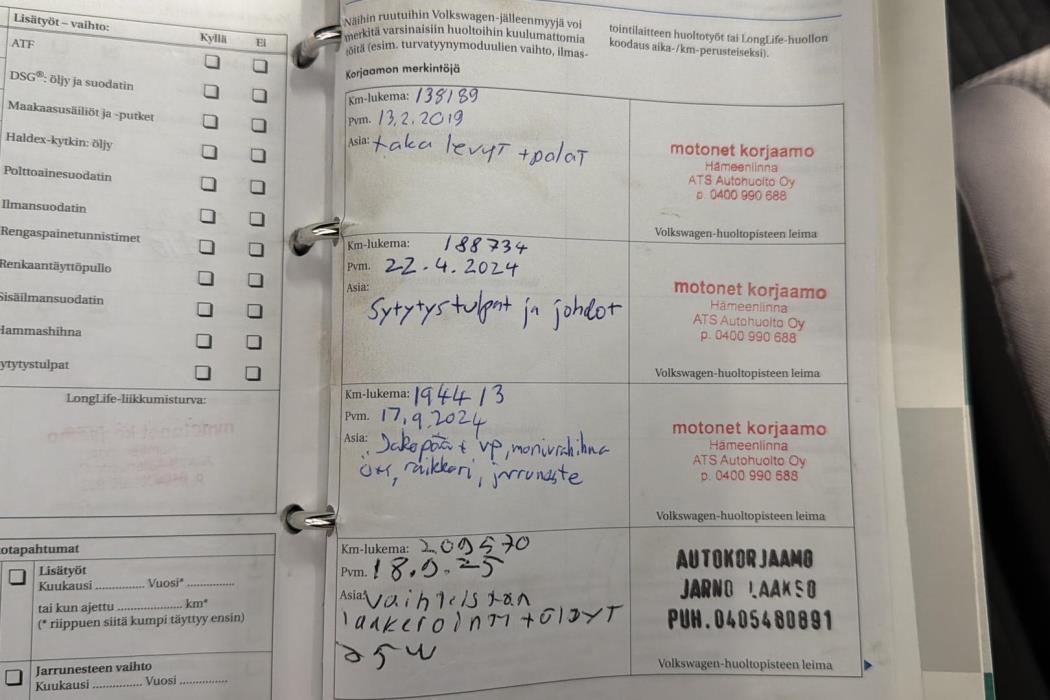 Lisätyöt – vaihto:
Kyllä
Ei
ATF
DSG®: öljy ja suodatin
Maakaasusäiliöt ja -putket
Haldex-kytkin: öljy
Polttoainesuodatin
Ilmansuodatin
Rengaspainetunnistimet
Renkaantäyttöpullo
Sisäilmansuodatin
Hammashihna
ytytystulpat
LongLife-liikkumisturva:
otapahtumat
Lisätyöt
Kuukausi .............. Vuosi* ..............
tai kun ajettu .................... km*
(* riippuen siitä kumpi täyttyy ensin)
Jarrunesteen vaihto
Kuukausi .............. Vuosi ..............
Näihin ruutuihin Volkswagen-jälleenmyyjä voi
merkitä varsinaisiin huoltoihin kuulumattomia
töitä (esim. turvatyynymoduulien vaihto, ilmas-
tointilaitteen huoltotyöt tai LongLife-huollon
koodaus aika-/km-perusteiseksi).
Korjaamon merkintöjä
Km-lukema: 138189
Pvm. 13.2.2019
Asia: taka levyT +palaT
motonet korjaamo
Hämeenlinna
ATS Autohuolto Oy
p. 0400 990 688
Volkswagen-huoltopisteen leima
Km-lukema: 188734
Pvm. 22.4.2024
Asia:
Sytytystulpat ja johdot
motonet korjaamo
Hämeenlinna
ATS Autohuolto Oy
p. 0400 990 688
Volkswagen-huoltopisteen leima
Km-lukema: 194413
Pvm. 17.9.2024
Asia: Jakopää + vp, moniurahihna
raikkari, jarruneste
motonet korjaamo
Hämeenlinna
ATS Autohuolto Oy
p. 0400 990 688
Volkswagen-huoltopisteen leima
Km-lukema: 209570
Pvm. 18.9.25
Asia: Vaihteistan
laakerointi + ÖljyT
75W
AUTOKORJAAMO
JARNO LAAKSO
PUH.0405480891
Volkswagen-huoltopisteen leima